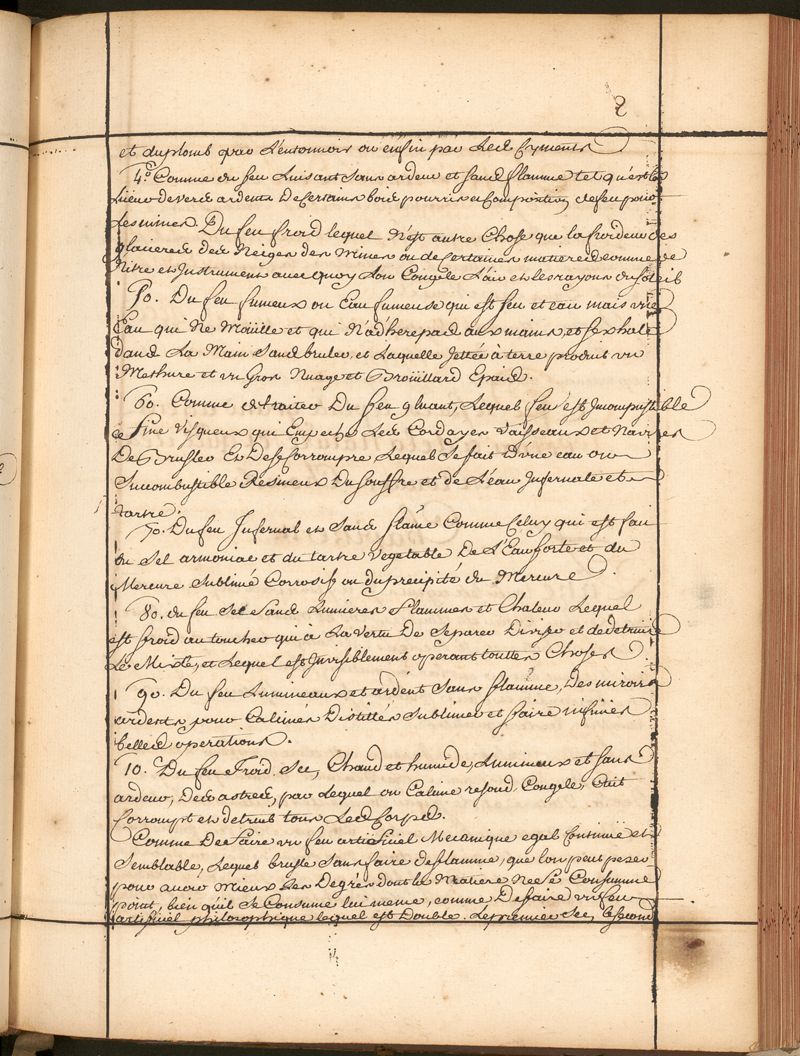 2
et du plomb par l'entonnoir ou enfin par les Cyments
4°. Comme du feu luisant sans ardeur et sans flamme tel qu'est
de verds ardents De Certains bois pourris et Composition de feu pour
les mines. Du feu froid lequel n'est autre Chose que la froideur des
glacieres des Neiges des Mines ou de Certaines matieres comme de
Nitre et Instruments avec quoy lon Congele l'air et les rayons du soleil
5o. Du feu fumeux ou Eau fumeuse qui est feu et eau mais vne
Eau qui Ne Moüille et qui N'adhere pas aux mains, et s'exhale
dans La Main Sans bruler, et Laquelle Jettée à terre produit vn
et vn Gros Nuage et Broüillard Epais.
6o. Comme de traiter Du feu gluant, Lequel feu est Incompustible
Visqueux qui Empeche Les Cordages Vaisseaux et Navires
De Brusler Et De se Corrompre Lequel Se fait D'vne eau ou
Incombustible Resineux Du souffre et de L'eau Infernale et
tartre.
7o. Du feu Infernal et Sans flâme Comme Celuy qui est fait
du Sel armoniac et du tartre Vegetable De L'Eau forte et du
Mercure Sublimé Corrosif ou du precipité du Mercure.
8o. du feu Sec Sans Lumieres flammes et Chaleur Lequel
est froid au toucher qui à La Vertu De Separer Diviser et de detruire
Le Mixte, et Lequel est Invisiblement operant touttes Choses
9o. Du feu Lumineaux et ardent Sans flamme, Des miroirs
ardents pour Calciner Distiller Sublimer et faire infinies
belles operations.
10. Du feu Froid Sec, Chaud et humide, Lumineux et sans
ardeur, Des astres, par Lequel on Calcine resoud Congele, Cuit
Corrompt et detruit tous Les Corps.
Comme De faire vn feu artificiel Mecanique egal Continuë et
Semblable, Lequel brusle Sans faire de flamme, que lon peut peser
pour avoir Mieux Les Degrés dont la Matiere Ne se Consumme
point, bien qu'il Se Consume lui meme, comme De faire vn feu
artificiel philosophique lequel est Double. Le premier Sec, le second